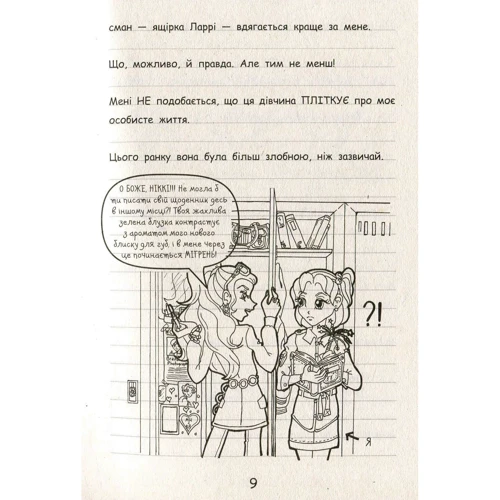 сман — ящірка Ларрі — вдягається краще за мене.
Що, можливо, й правда. Але тим не менш!
Мені НЕ подобається, що ця дівчина ПЛІТКУЄ про моє
особисте життя.
Цього ранку вона була більш злобною, ніж зазвичай.
О БОЖЕ, НІККІ!!! Не могла б
ти писати свій щоденник десь
в іншому місці?! Твоя жахлива
зелена блузка контрастує
з ароматом мого нового
блиску для губ, і в мене через
це починається МІГРЕНЬ!
?!
Я
9